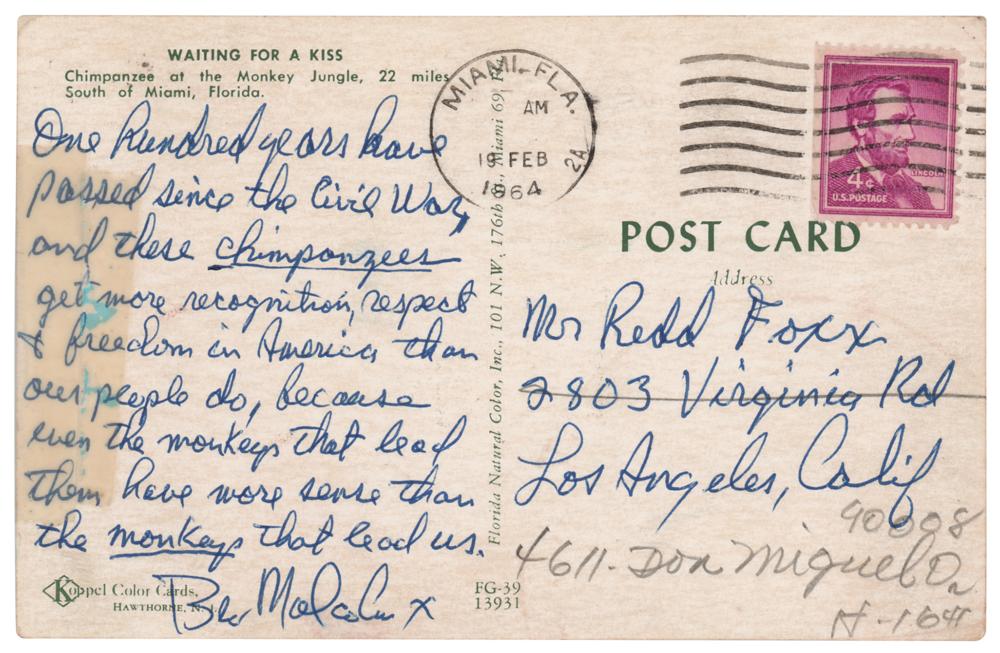 WAITING FOR A KISS
Chimpanzee at the Monkey Jungle, 22 miles
South of Miami, Florida.
One hundred years have
passed since the Civil War,
and these chimpanzees
get more recognition, respect
& freedom in America than
our people do, because
even the monkeys that lead
them have more sense than
the monkeys that lead us.
Bro Malcolm X
Koppel Color Cards,
HAWTHORNE, N.J.
FG-39
13931
Florida Natural Color, Inc., 101 N.W. 176th St., Miami 69, Fla.
MIAMI, FLA.
AM
19 FEB
1964
2A
4¢
LINCOLN
U.S. POSTAGE
POST CARD
Address
Mr Redd Foxx
2803 Virginia Rd
Los Angeles, Calif
90008
4611- Don Miguel Dr
H-164